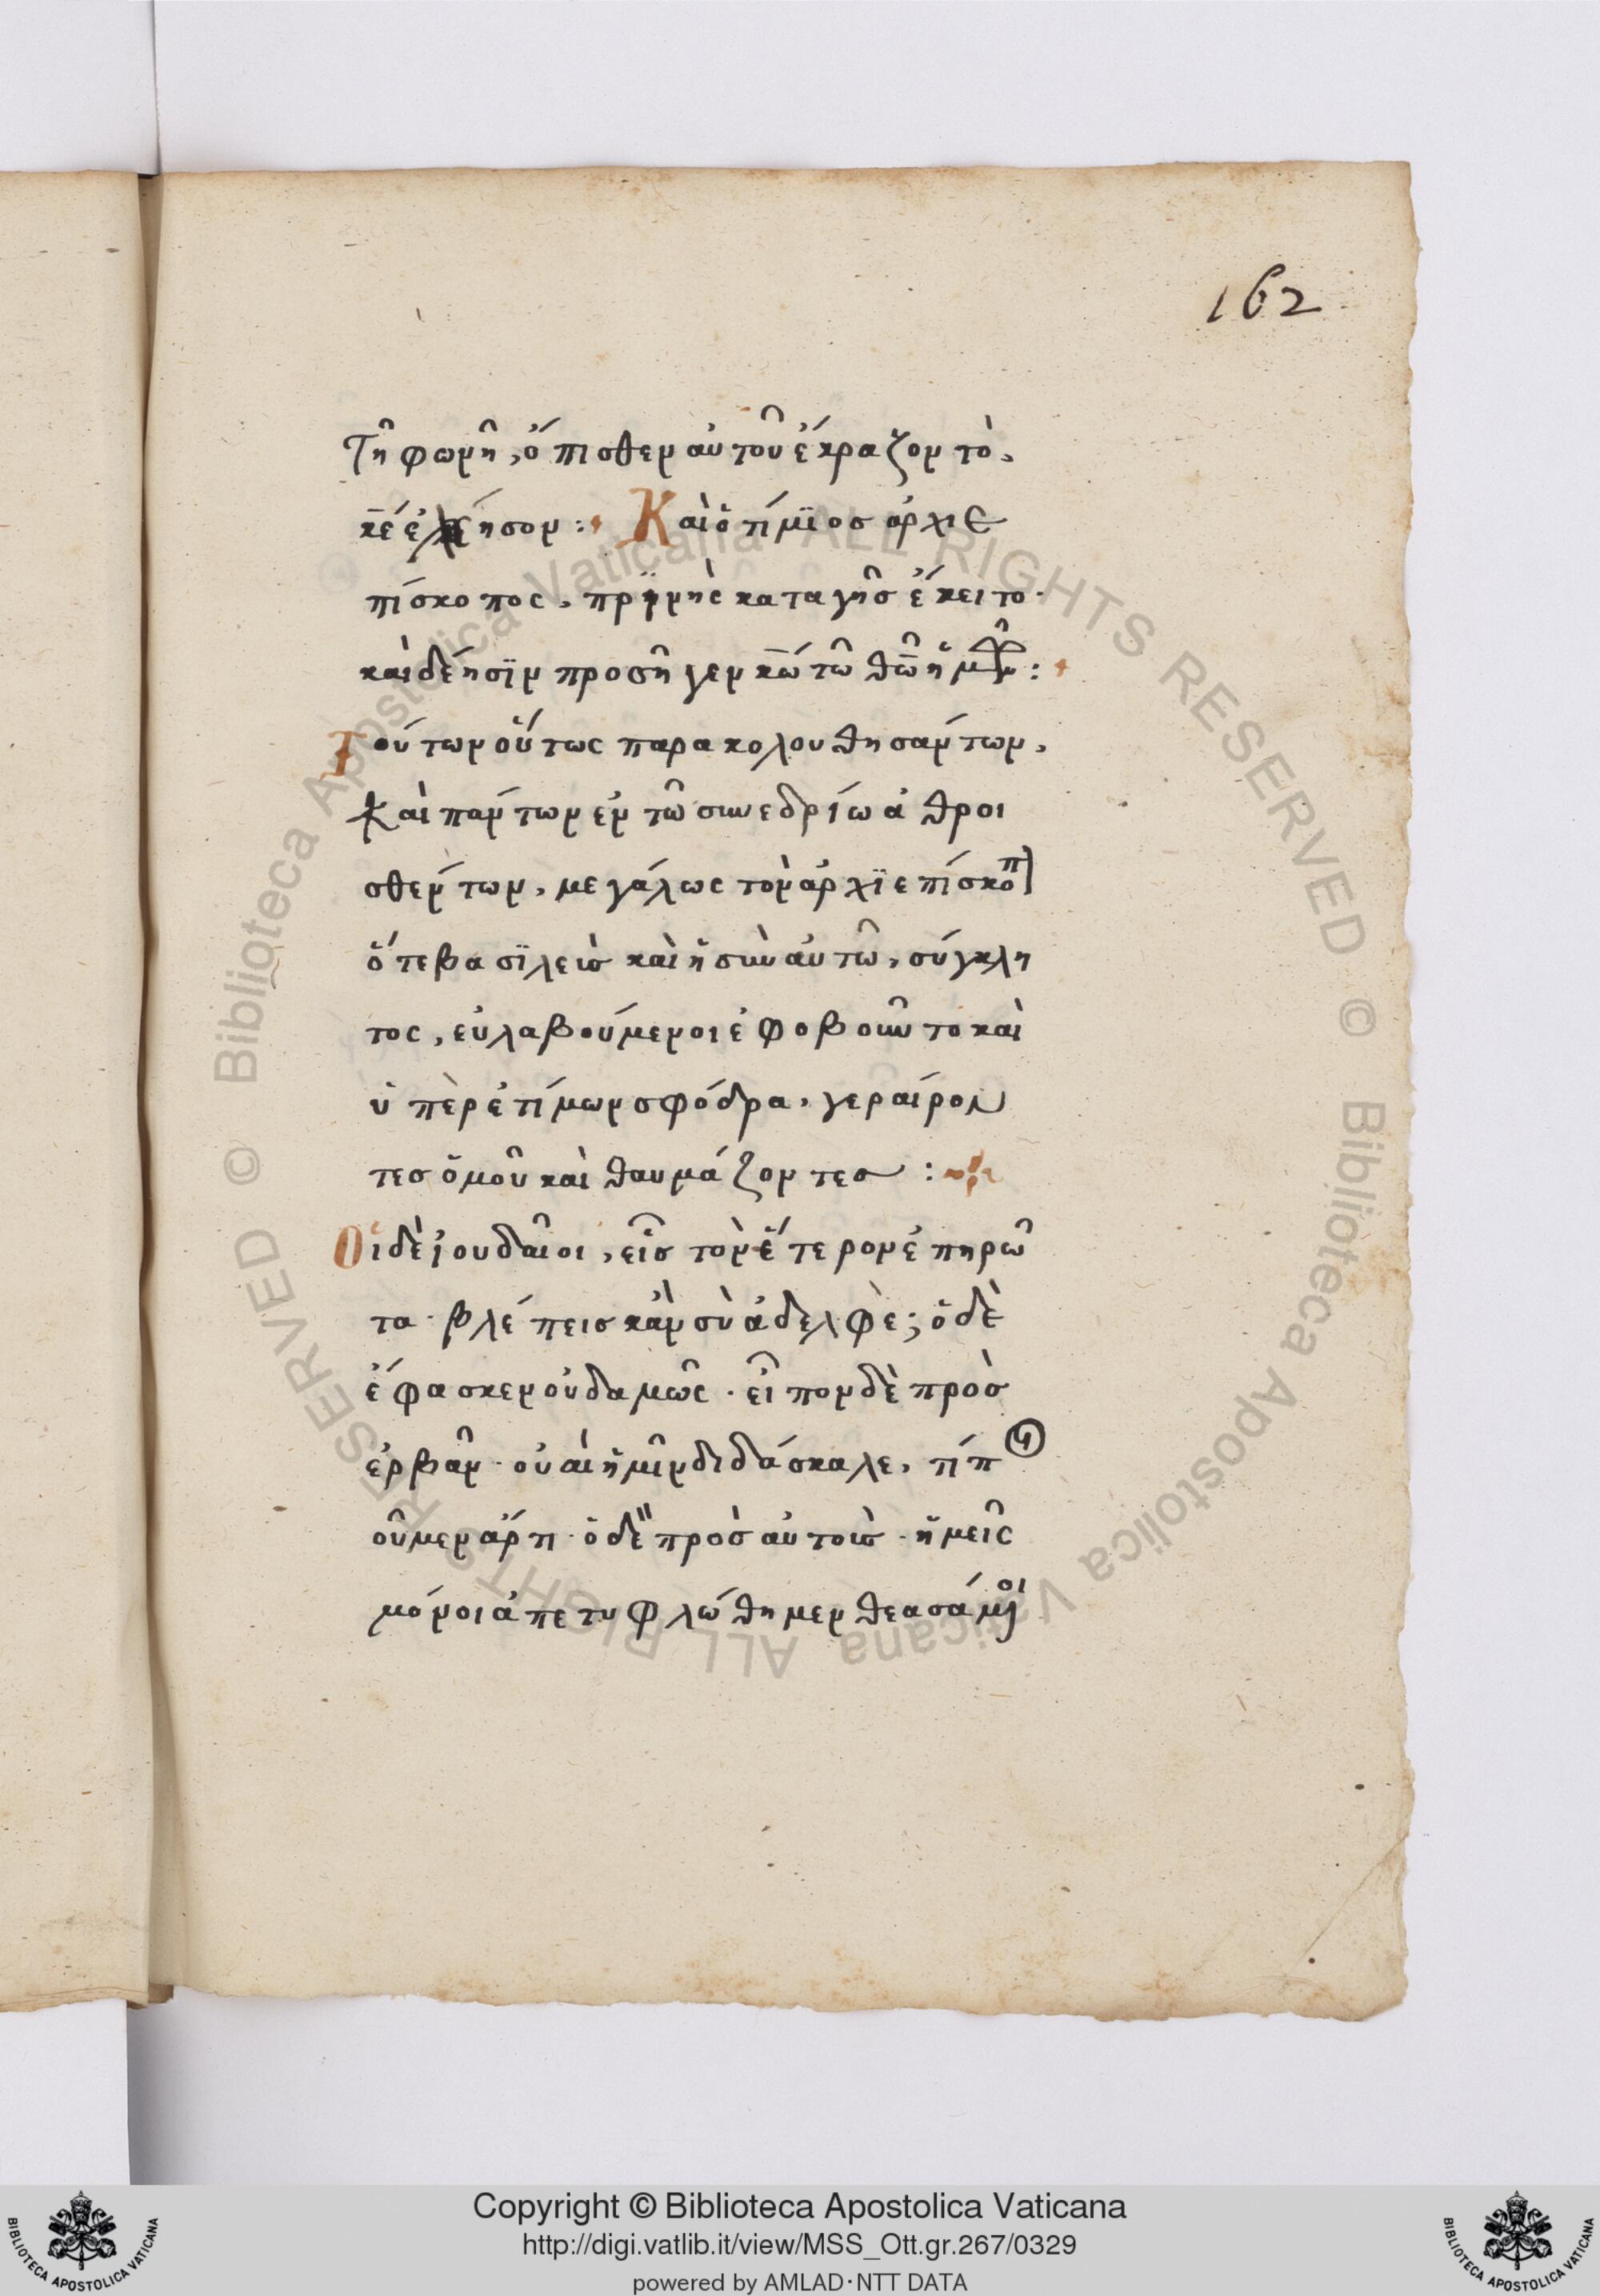 162
τῆ φωνῆ, ὄπισθεν αὐτοῦ ἔκραζον τὸ,
κ̅έ ἐλέησον: Καὶ ὁ τίμϊος ἀρχιε
πίσκοπος, πρηνὴς κατα γῆς ἔκειτο·
καὶ δέησϊν προσῆγεν κ̅ω τῶ θ̅ῶ ἡμῶν:
Τούτων οὕτως παρακολουθησάντων,
καὶ πάντων ἐν τῶ συνεδρίω ἀθροι
σθέντων, μεγάλως τὸν ἀρχϊεπίσκοπ
ὅτε βασϊλεὺς καὶ ἡ σὺν αὐτῶ, σύγκλη
τος, εὐλαβούμενοι ἐφοβοῦντο καὶ
ὑπὲρ ἐτίμων σφόδρα, γεραίρον
τες ὁμοῦ καὶ θαυμάζοντες:
Οἱ δὲ ἰουδαῖοι, εἷς τὸν ἕτερον ἐπηρῶ
τα· βλέπεις κἂν σὺ ἀδελφὲ; ὁ δὲ
ἔφασκεν οὐδαμῶς· εἶπον δὲ πρὸς
ἐρβᾶν· οὐαὶ ἡμῖν διδάσκαλε, τί π
οῦμεν ἄρτι· ὁ δὲ πρὸς αὐτοὺς· ἡμεῖς
μόνοι ἀπετυφλώθημεν θεασάμοι
Copyright © Biblioteca Apostolica Vaticana
http://digi.vatlib.it/view/MSS_Ott.gr.267/0329
powered by AMLAD·NTT DATA
© Biblioteca Apostolica Vaticana ALL RIGHTS RESERVED © Biblioteca Apostolica Vaticana ALL RIGHTS RESERVED
BIBLIOTECA APOSTOLICA VATICANA
BIBLIOTECA APOSTOLICA VATICANA